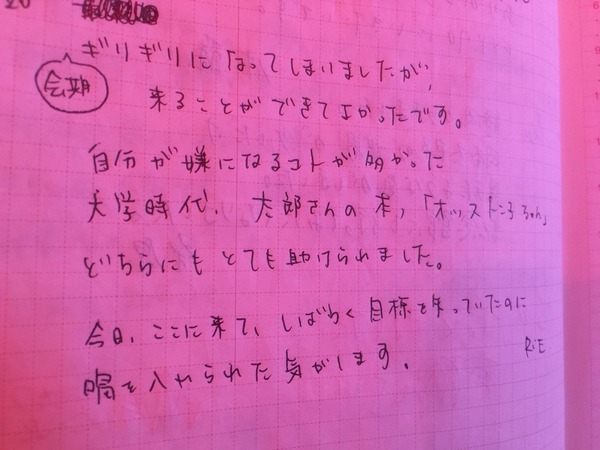 20
会期
ぎりぎりになってしまいましたが、
来ることができてよかったです。
自分が嫌になるコトが多かった
大学時代、太郎さんの本、「オッストころちゃん」
どちらにもとても助けられました。
今日、ここに来て、しばらく目標を失っていたのに
喝を入れられた気がします。
RiE